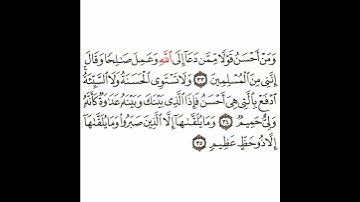 وَمَنْ أَحْسَنُ قَوْلًا مِّمَّن دَعَآ إِلَى ٱللَّهِ وَعَمِلَ صَٰلِحًا وَقَالَ
إِنَّنِى مِنَ ٱلْمُسْلِمِينَ ٣٣ وَلَا تَسْتَوِى ٱلْحَسَنَةُ وَلَا ٱلسَّيِّئَةُ ۚ
ٱدْفَعْ بِٱلَّتِى هِىَ أَحْسَنُ فَإِذَا ٱلَّذِى بَيْنَكَ وَبَيْنَهُۥ عَدَٰوَةٌ كَأَنَّهُۥ
وَلِىٌّ حَمِيمٌ ٣٤ وَمَا يُلَقَّىٰهَآ إِلَّا ٱلَّذِينَ صَبَرُوا۟ وَمَا يُلَقَّىٰهَآ
إِلَّا ذُو حَظٍّ عَظِيمٍ ٣٥